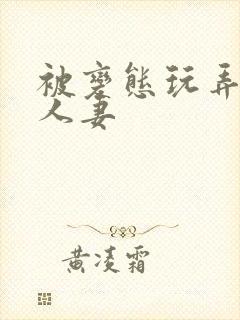 被變態玩弄
人妻
黃凌霜